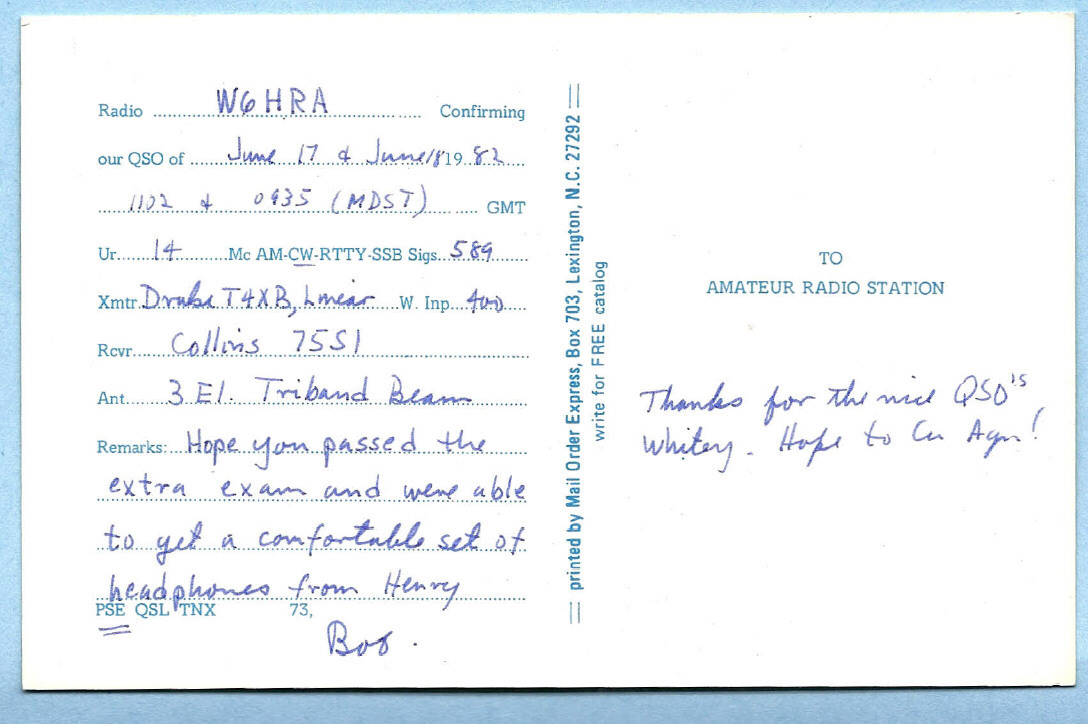 Radio W6HRA Confirming
our QSO of June 17 & June 18 1982
1102 & 0935 (MDST) GMT
Ur 14 Mc AM-CW-RTTY-SSB Sigs 589
Xmtr Drake T4XB, Linear W. Inp. 400
Rcvr Collins 75S1
Ant. 3 El. Triband Beam
Remarks: Hope you passed the
extra exam and were able
to get a comfortable set of
headphones from Henry
PSE QSL TNX 73,
Bob.
printed by Mail Order Express, Box 703, Lexington, N.C. 27292
write for FREE catalog
TO
AMATEUR RADIO STATION
Thanks for the nice QSO's
Whitey. Hope to Cu Agn!